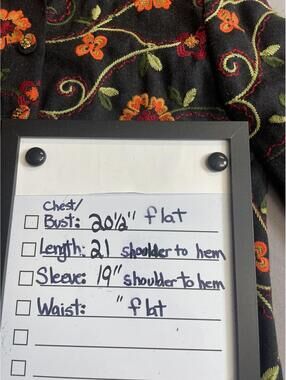 Chest/
Bust: 20½" flat
Length: 21 shoulder to hem
Sleeve: 19" shoulder to hem
Waist: " flat